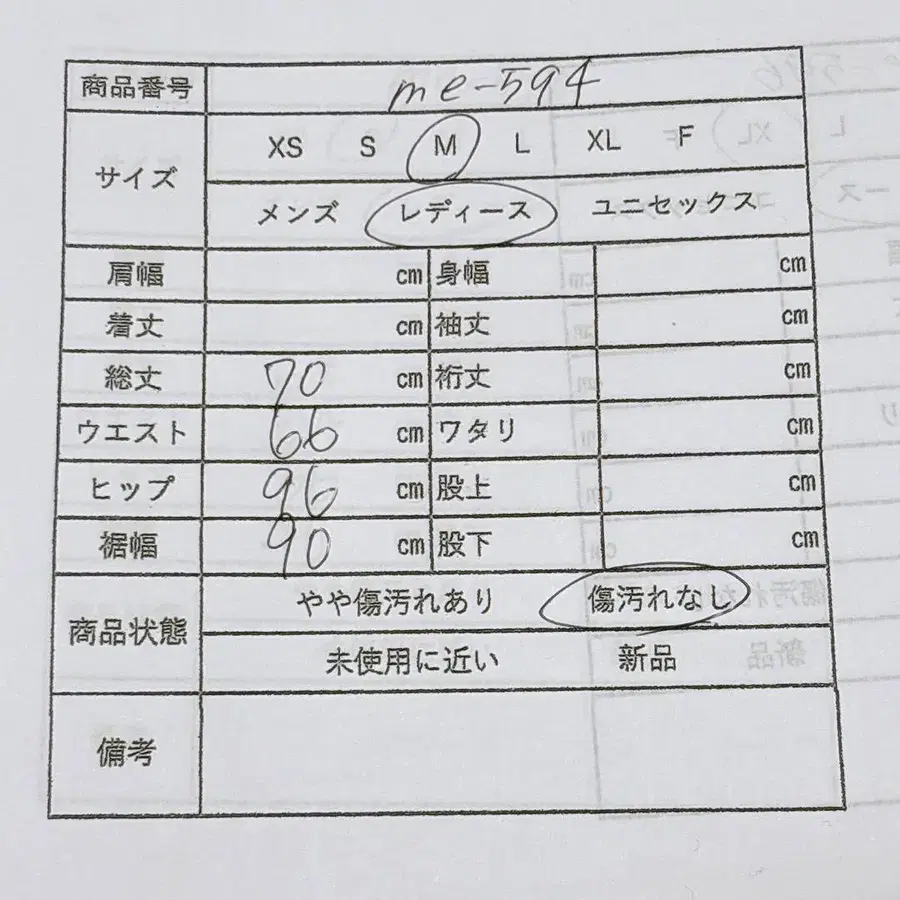 商品番号 me-594
サイズ XS S M L XL F
メンズ レディース ユニセックス
肩幅 cm 身幅 cm
着丈 cm 袖丈 cm
総丈 70 cm 裄丈 cm
ウエスト 66 cm ワタリ cm
ヒップ 96 cm 股上 cm
裾幅 90 cm 股下 cm
商品状態 やや傷汚れあり 傷汚れなし
未使用に近い 新品
備考